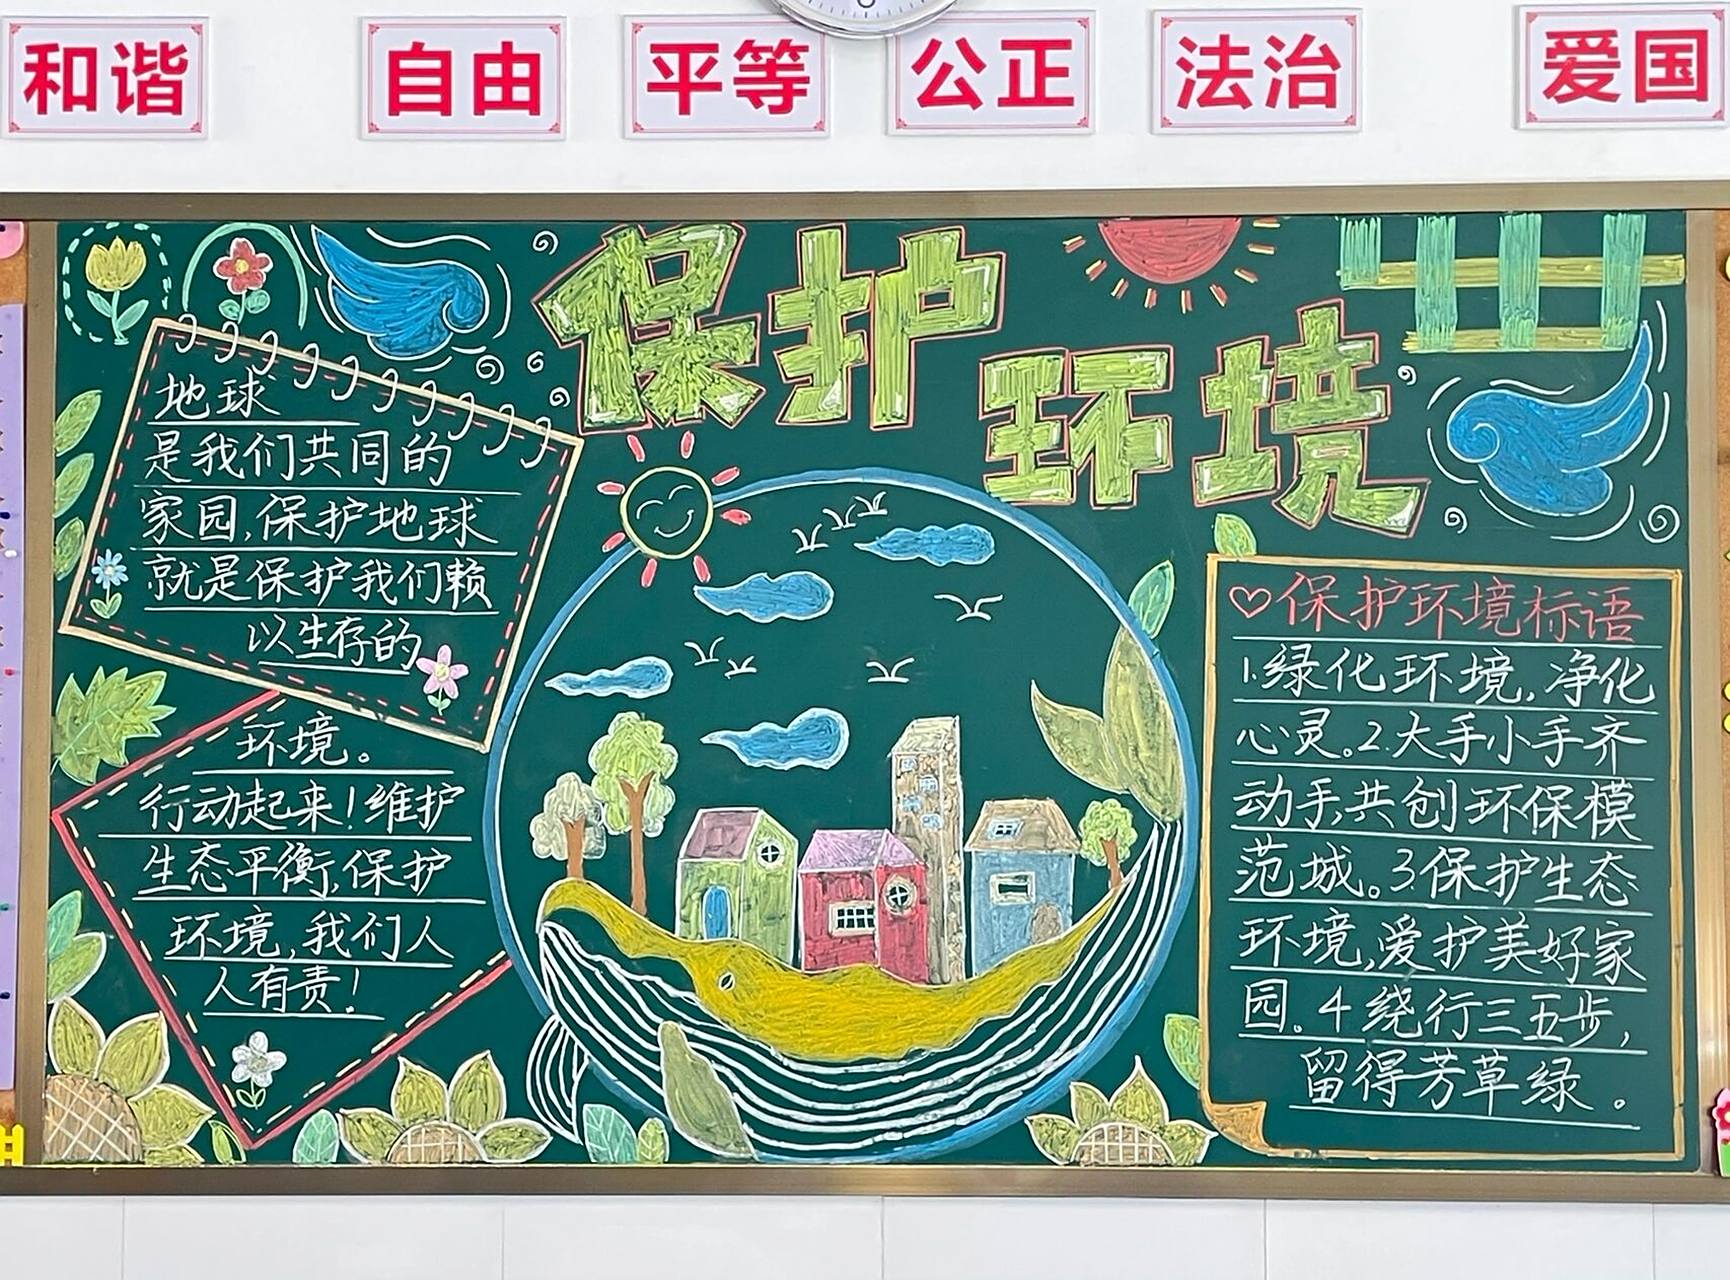 和谐
自由
平等
公正
法治
爱国
保护
环境
地球
是我们共同的
家园,保护地球
就是保护我们赖
以生存的
环境。
行动起来!维护
生态平衡,保护
环境,我们人
人有责!
♡保护环境标语
1.绿化环境,净化
心灵。2.大手小手齐
动手,共创环保模
范城。3.保护生态
环境,爱护美好家
园。4绕行三五步,
留得芳草绿。